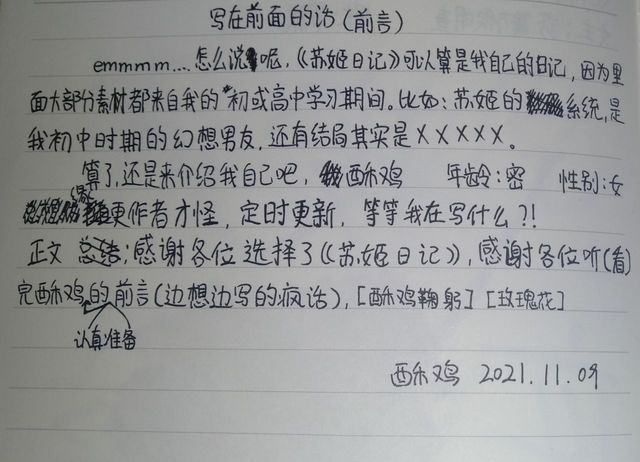 写在前面的话(前言)
emmmm...怎么说呢,《苏姬日记》可以算是我自己的日记,因为里
面大部分素材都来自我的初或高中学习期间。比如:苏姬的系统,是
我初中时期的幻想男友,还有结局其实是XXXXX。
算了,还是来介绍我自己吧,酥鸡 年龄:密 性别:女
爆更作者才怪,定时更新,等等我在写什么?!
正文 总结:感谢各位选择了《苏姬日记》,感谢各位听(看)
完酥鸡的前言(边想边写的疯话),[酥鸡鞠躬][玫瑰花]
认真准备
酥鸡 2021.11.09